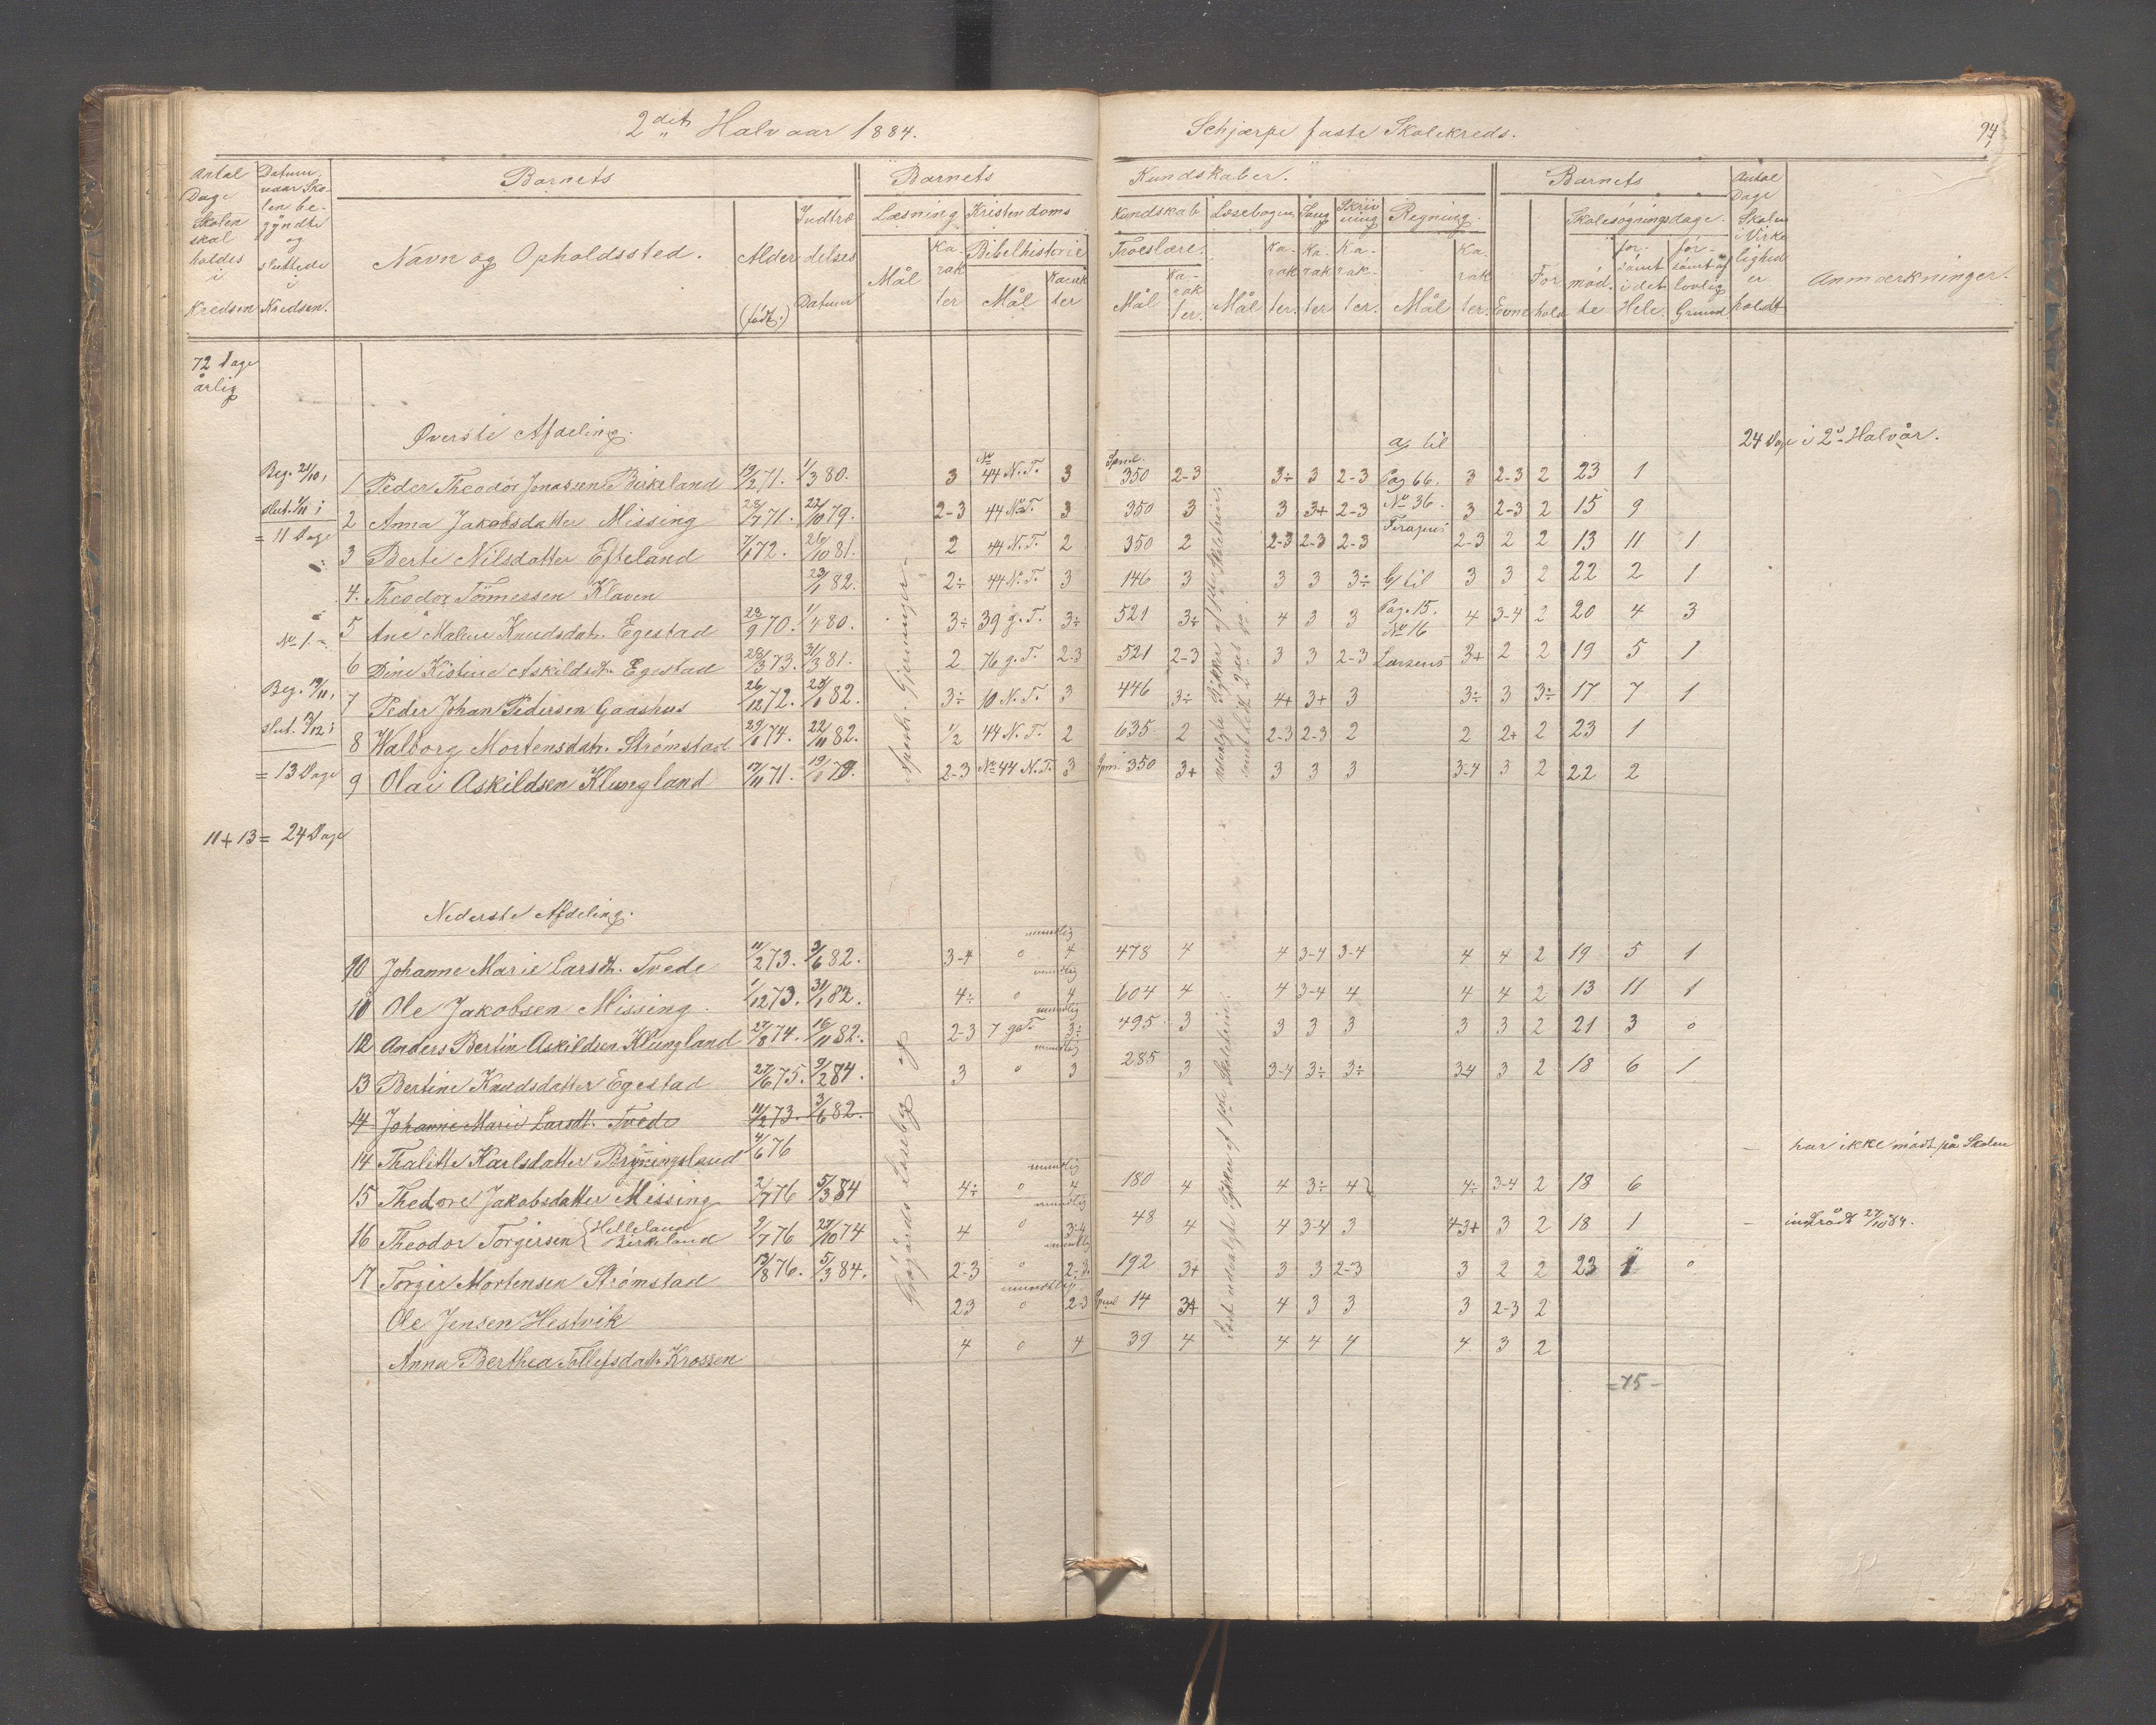 2det Halvaar 1884.
Schjærpe faste Skolekreds.
94
Antal Dage Skolen skal holdes i Kredsen
Datum, naar Skolen begyndte og sluttede i Kredsen.
Barnets
Navn og Opholdssted.
Alder (født.)
Indtrædelses Datum
Barnets
Læsning
Mål
Karakter
Kristendoms
Bibelhistorie
Mål
Karakter
Kundskaber.
Kundskab
Troeslære.
Mål
Karakter.
Læsebogen,
Mål
Karakter.
Sang
Karakter
Skrivning
Karakter.
Regning.
Mål
Karakter.
Barnets
Evne
Forhold
Skolesøgningsdage.
mødte
forsømt i det Hele.
forsømt af lovlig Grund
Antal Dage Skolen i Virkelighed er holdt
Anmærkninger.
72 Dage årlig
Øverste Afdeling.
a) til
24 Dage i 2d Halvår.
Beg. 21/10,
1 Peder Theodor Jonassen Birkeland 19/2 71. 1/3 80. 3 No 44 N.T. 3 Spml. 350 2-3 3÷ 3 2-3 Pag 66. 3 2-3 2 23 1
slut. 1/11;
2 Anna Jakobsdatter Missing 28/7 71. 22/10 79. 2-3 44 N.T. 3 350 3 3 3+ 2-3 No 36. 3 2-3 2 15 9
= 11 Dage
3 Berte Nilsdatter Efteland 7/1 72. 26/10 81. 2 44 N.T. 2 350 2 2-3 2-3 2-3 2-3 2 2 13 11 1
4. Theodor Tønnessen Klaven 23/1 82. 2÷ 44 N.T. 3 146 3 3 3 3÷ b) til 3 3 2 22 2 1
No 1. -
5 Ane Malene Knudsdatr. Egestad 22/9 70. 1/4 80. 3÷ 39 g.T. 3÷ 521 3÷ 4 3 3 Pag. 15. No 16 4 3-4 2 20 4 3
6 Dine Kistine Askildsdt. Egestad 28/3 73. 31/3 81. 2 76 g.T. 2-3 521 2-3 3 3 2-3 Larsens 3+ 2 2 19 5 1
Beg. 19/11,
7 Peder Johan Pedersen Gaashus 26/12 72. 82. 3÷ 10 N.T. 3 446 3÷ 4+ 3+ 3 3÷ 3 3÷ 17 7 1
slut. 3/12;
8 Walborg Mortensdatr. Strømstad 29/1 74. 22/11 82. 1/2 44 N.T. 2 635 2 2-3 2-3 2 2 2+ 2 23 1
= 13 Dage
9 Olai Askildsen Klungland 17/11 71. 2-3 No 44 N.T. 3 Spm. 350 3+ 3 3 3 3-4 3 2 22 2
11 + 13 = 24 Dage
Nederste Afdeling.
10 Johanne Marie Larsdt. Tvede 11/2 73. 3/6 82. 3-4 mundlig 0 4 478 4 4 3-4 3-4 4 4 2 19 5 1
11 Ole Jakobsen Missing 1/12 73. 31/1 82. 4÷ mundlig 0 4 604 4 4 3-4 4 4 4 2 13 11 1
12 Anders Bertin Askildsen Klungland 27/8 74. 16/11 82. 2-3 7 g.T. mundlig 3÷ 495 3 3 3 3 3 3 2 21 3 0
13 Bertine Knudsdatter Egestad 27/6 75. 9/2 84. 3 mundlig 0 3 285 3 3-4 3÷ 3÷ 3-4 3 2 18 6 1
14 Johanne Marie Larsdt. Tvede 11/2 73. 3/6 82.
14 Thalitte Karlsdatter Bryningsland 4/6 76 - har ikke mødt på Skolen
15 Thedore Jakobsdatter Missing 2/7 76 5/3 84 4÷ mundlig 0 4 180 4 4 3÷ 4 4÷ 3-4 2 18 6
16 Theodor Torgersen {Helleland Birkeland 9/7 76 27/10 74 4 mundlig 0 3-4 48 4 4 3-4 3 4 3+ 3 2 18 1 - indtrådt 27/10 84.
17 Torger Mortensen Strømstad 13/8 76. 5/3 84. 2-3 mundlig 0 2-3 192 3+ 3 3 2-3 3 2 2 23 1 0
Ole Jensen Hestvik 23 mundtlig 0 2-3 Spml 14 3+ 4 3 3 3 2-3 2
Anna Berthea Tollefsdatr Krossen 4 0 4 39 4 4 4 4 4 3 2
= 75 -